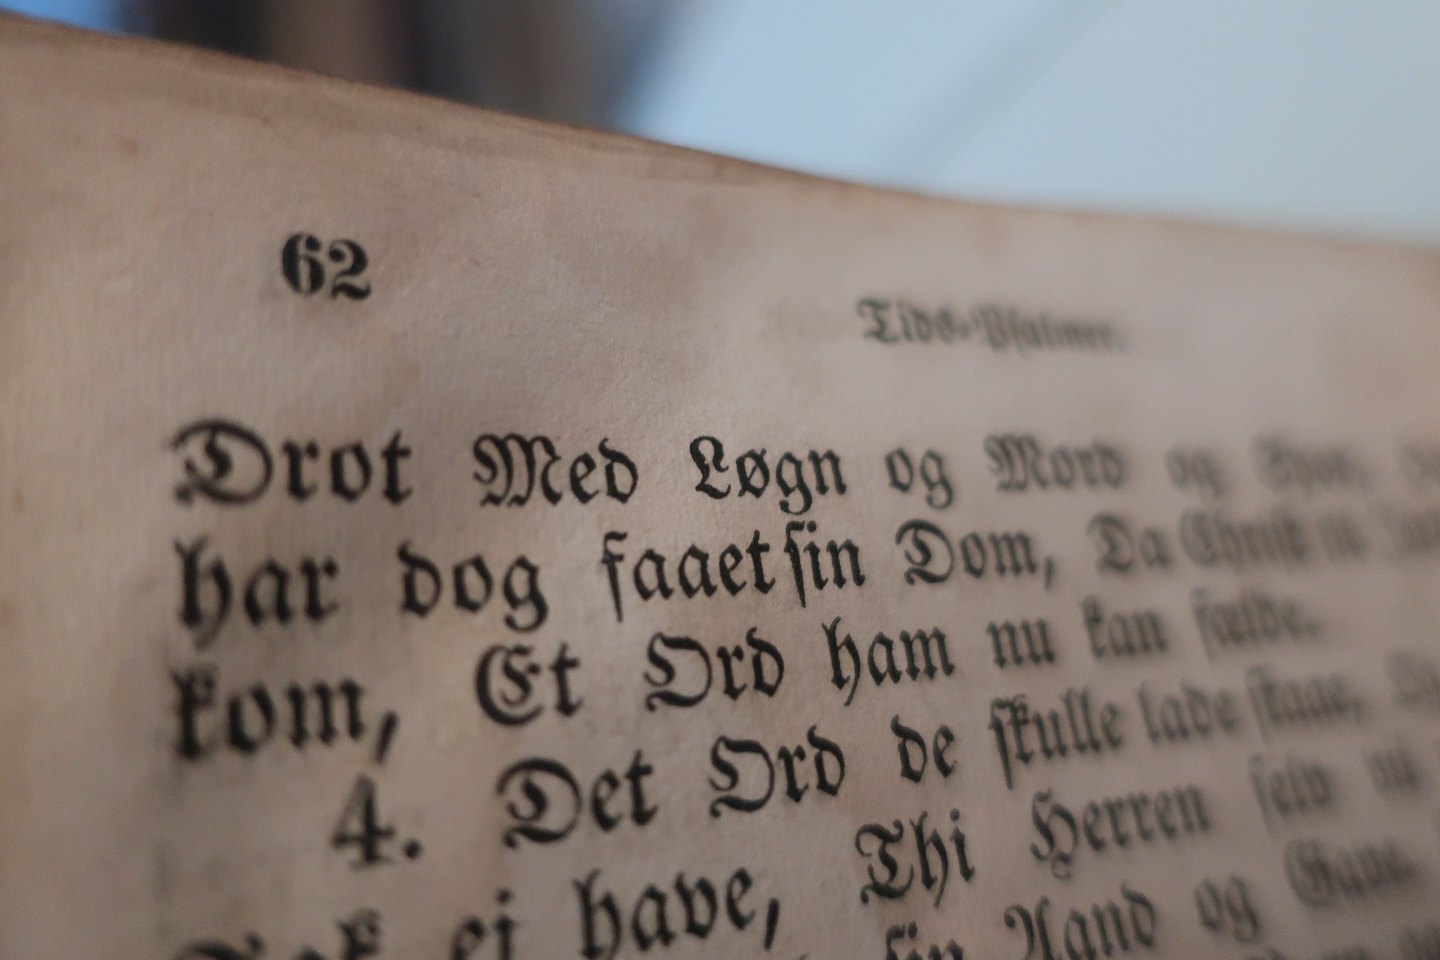 62
Tids-Psalmer.
Drot Med Løgn og Mord og
har dog faaet sin Dom, Da Christ
kom, Et Ord ham nu kan fælde.
4. Det Ord de skulle lade staae,
ei have, Thi Herren selv
sin Aand og Gave